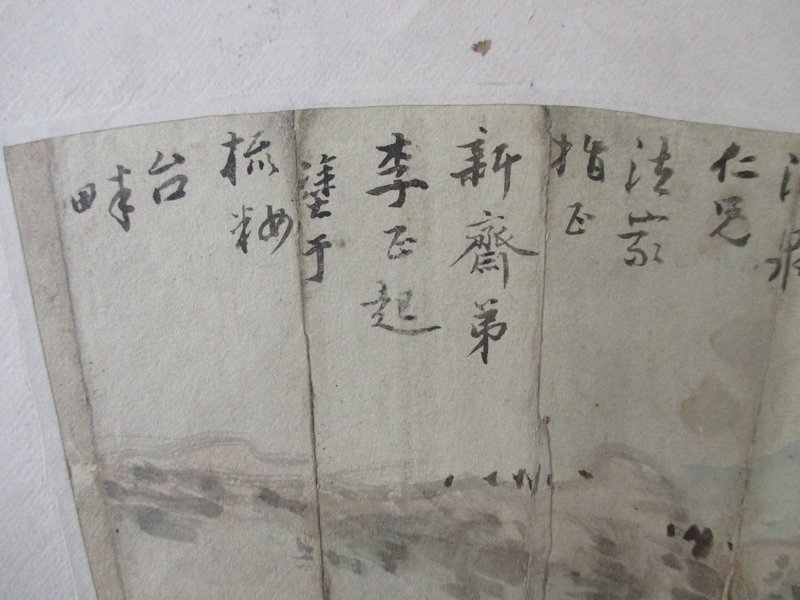 仁兄
法家
指正
新齋弟
李正起
塗于
台
畔